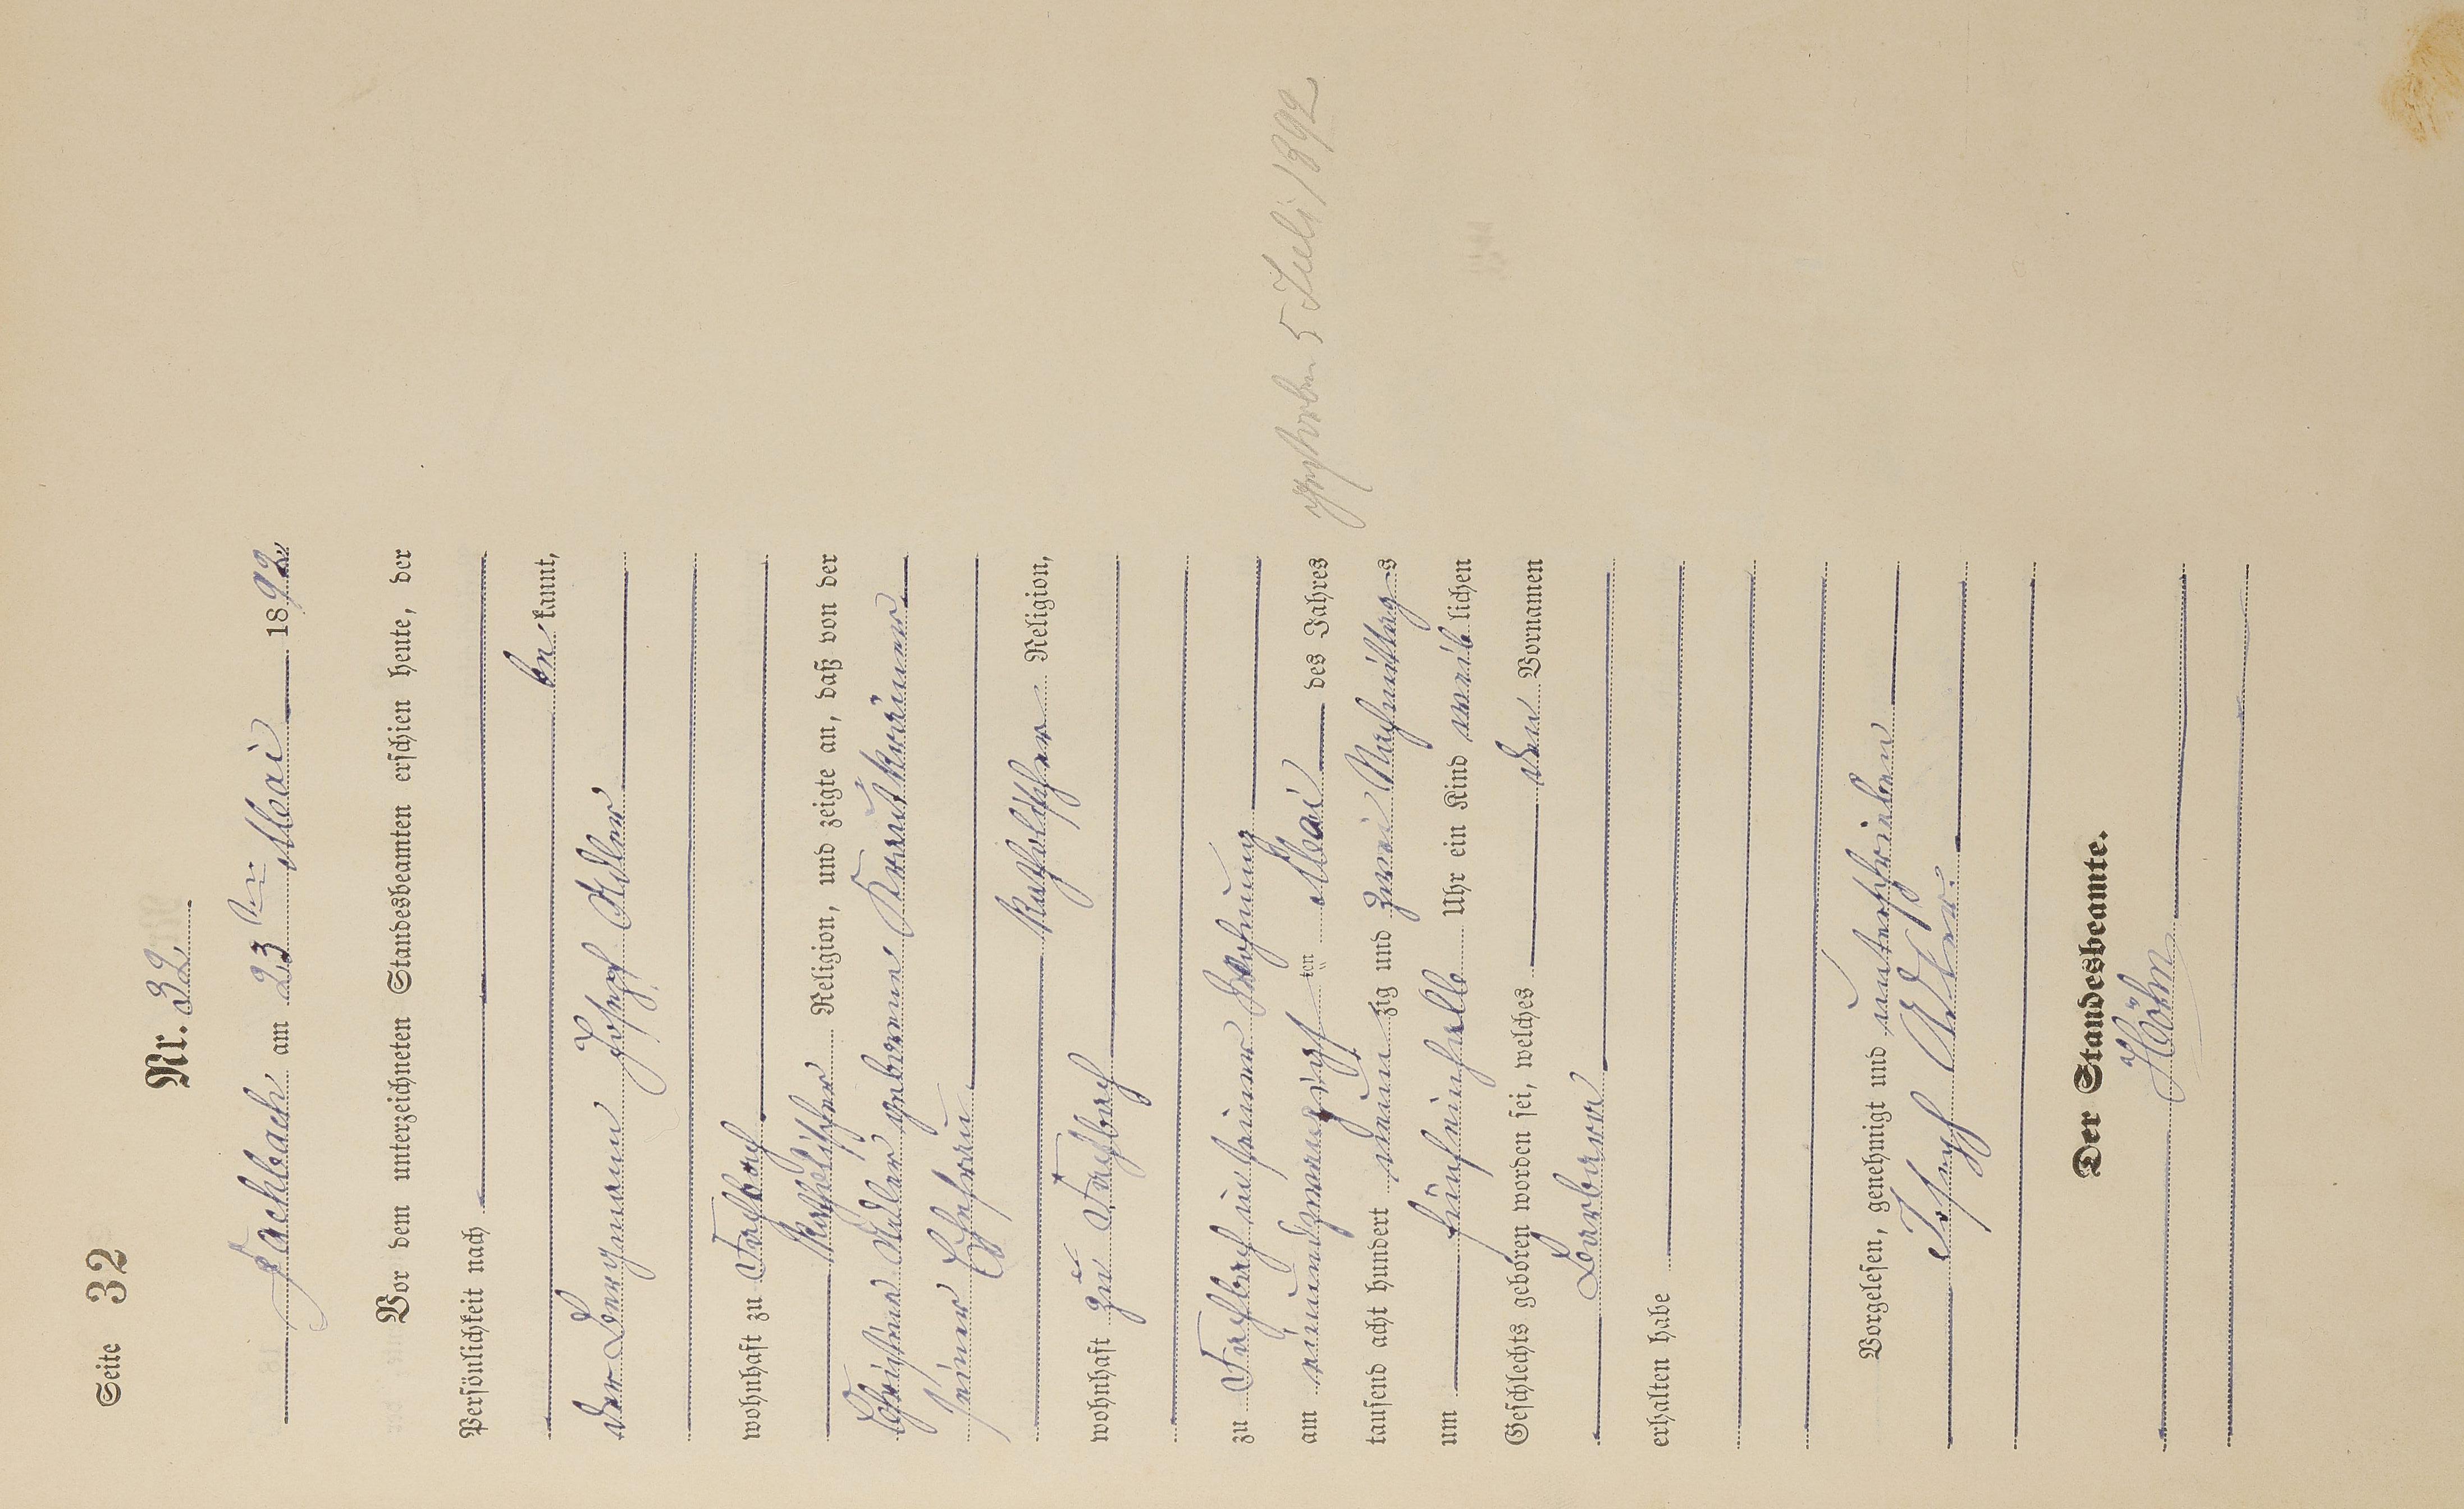 Seite 32
Nr. 32
Fachbach am 23ten Mai 1892
Vor dem unterzeichneten Standesbeamten erschien heute, der
Persönlichkeit nach
be kannt,
der Bergmann Joseph Adler
wohnhaft zu Fachbach
katholischer Religion, und zeigte an, daß von der
Christina Adler geborenen Krautkrämer
seiner Ehefrau
katholischer Religion,
wohnhaft zu Fachbach
zu Fachbach in seiner Wohnung
am einundzwanzigsten Mai des Jahres
tausend acht hundert neun zig und zwei Nachmittags
um fünfeinhalb Uhr ein Kind weiblichen
Geschlechts geboren worden sei, welches den Vornamen
Barbara
erhalten habe
Vorgelesen, genehmigt und unterschrieben
Joseph Adler
Der Standesbeamte.
Höhn
gestorben 5 Juli 1892